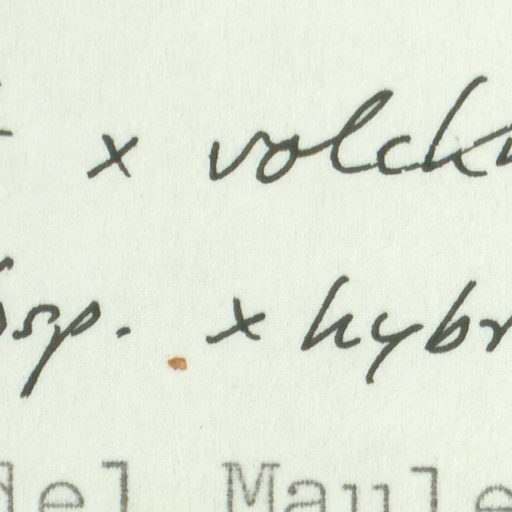 x volck
sp. x hybr
del Maule